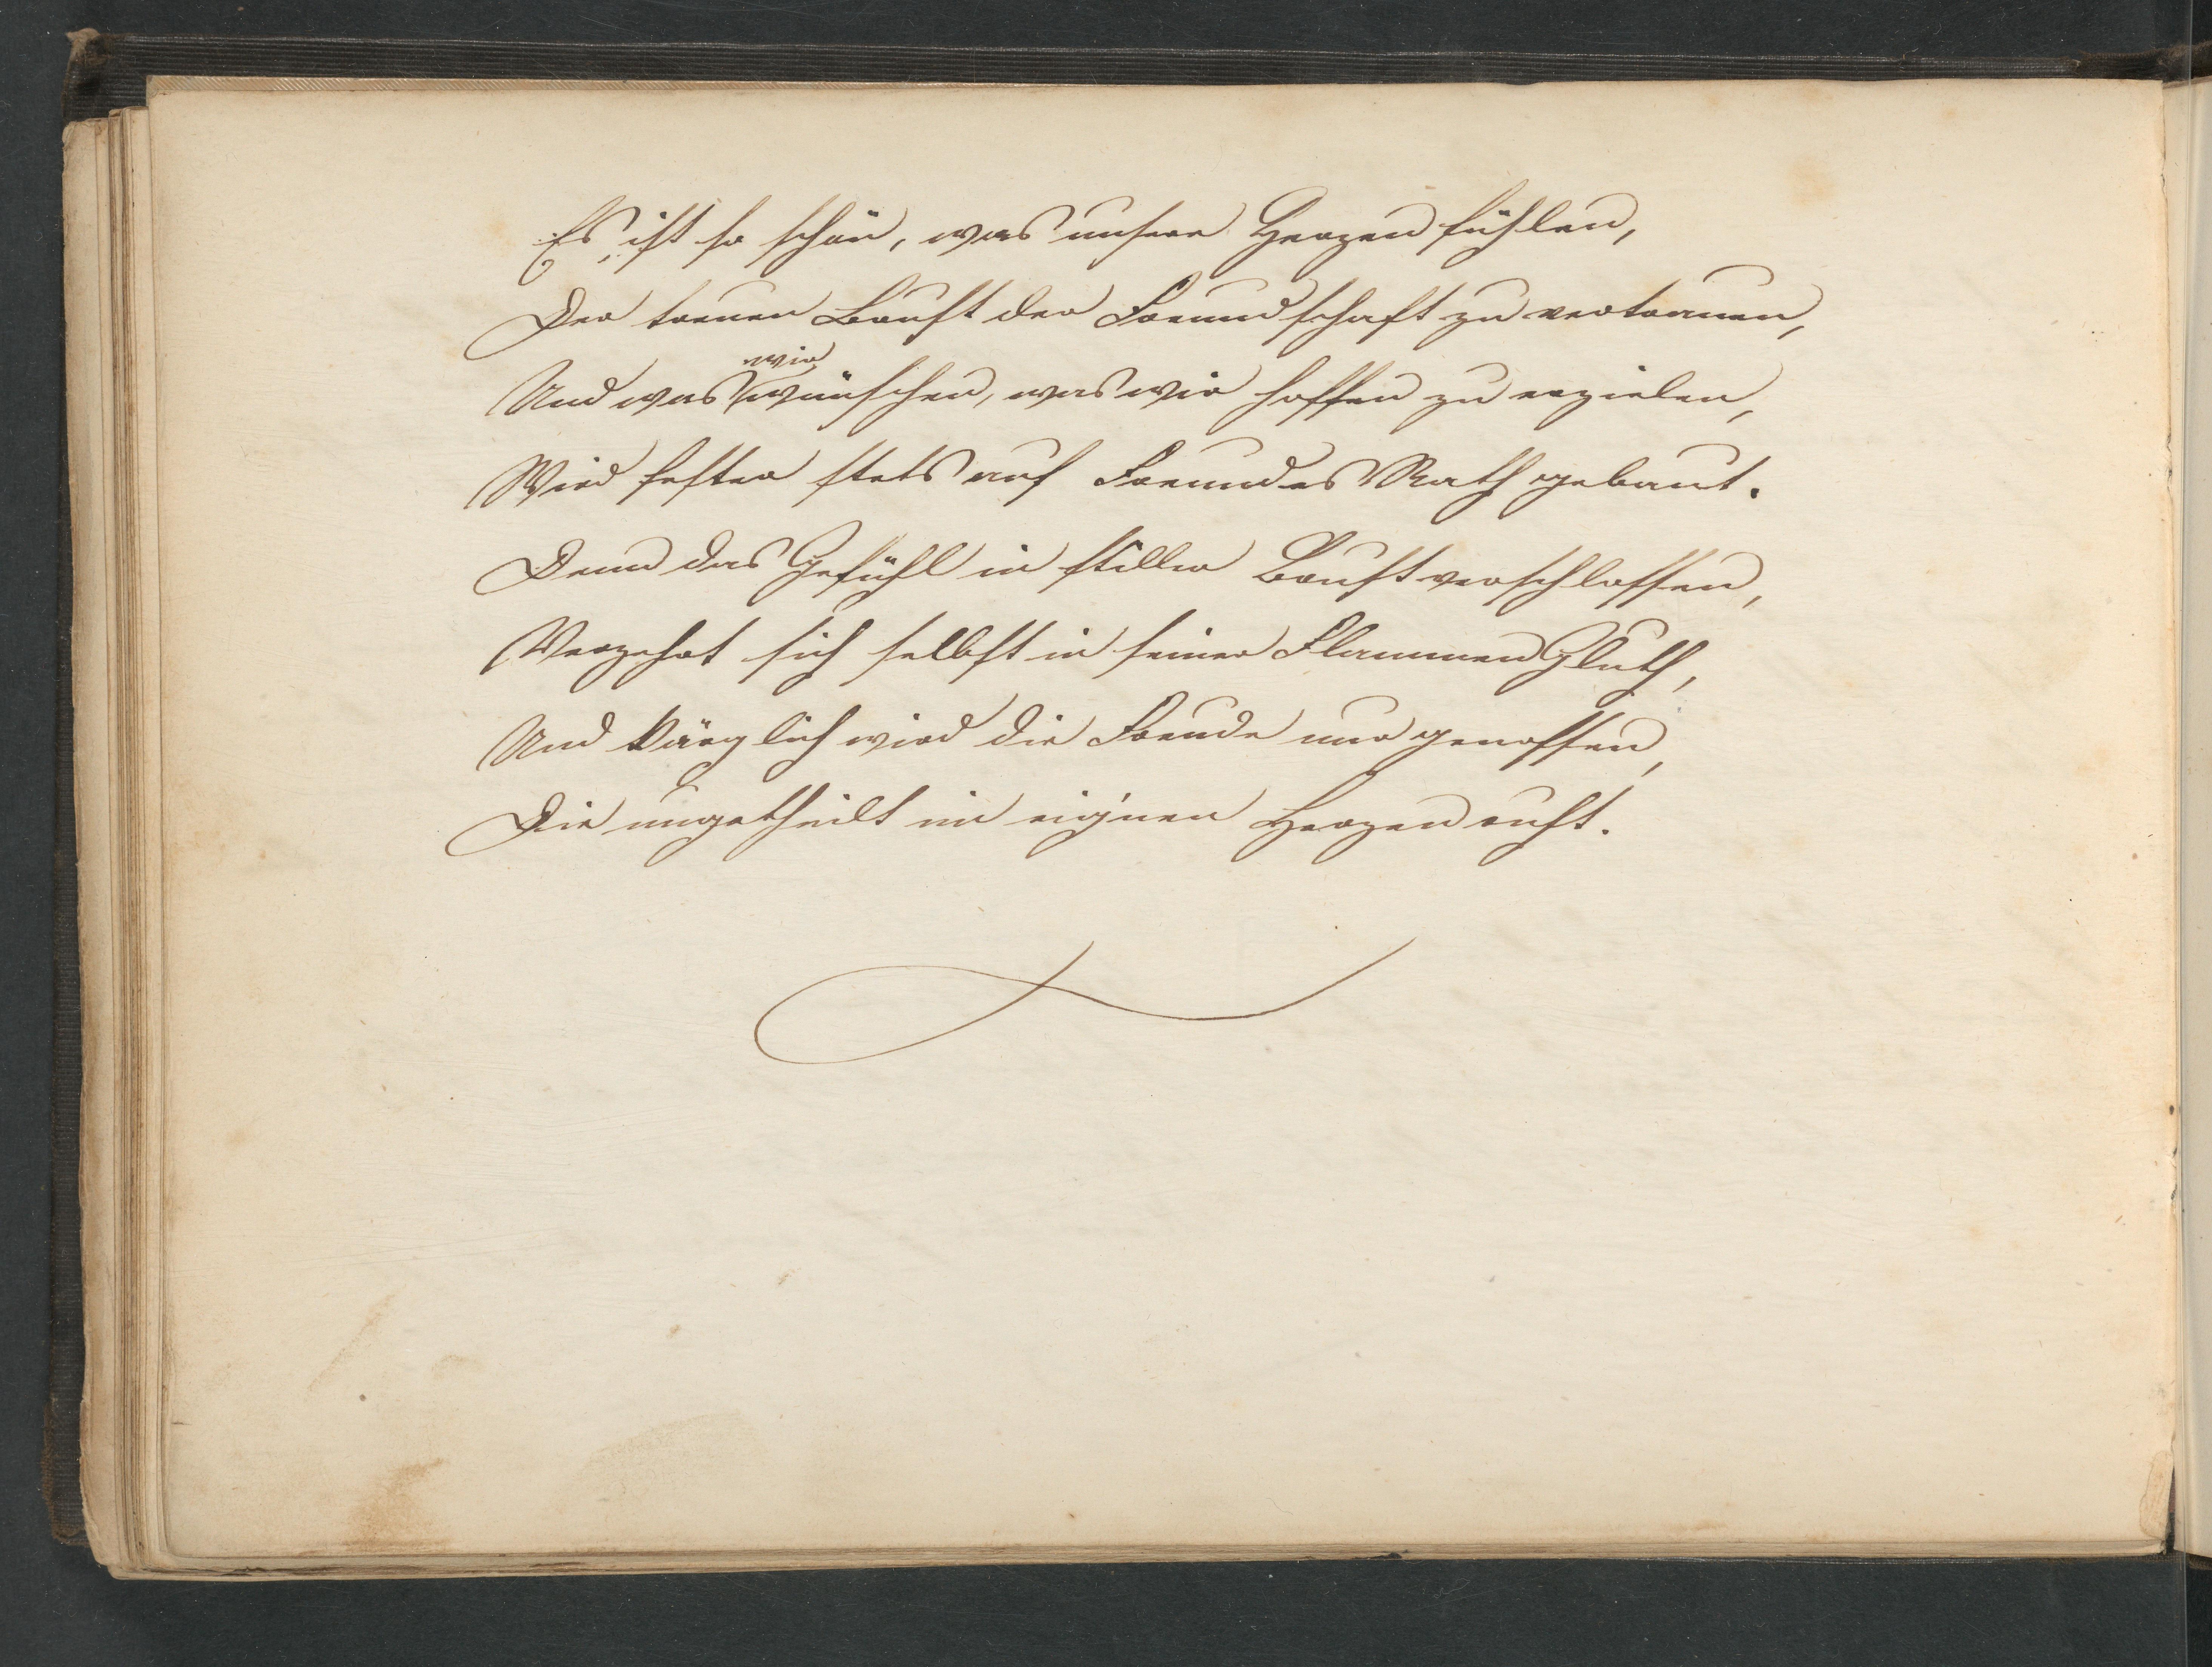 Es ist so schön, was unsere Herzen fühlen,
Der treuen Brust der Freundschaft zu vertrauen,
Und was wir wünschen, was wir hoffen zu erzielen,
Wird fester stets auf Freundes Rath gebaut.
Denn das Gefühl in stiller Brust verschlossen,
Verzehrt sich selbst in seiner Flammen Gluth,
Und kärglich wird die Freude nur genossen,
Die ungetheilt im eig'nen Herzen ruht.